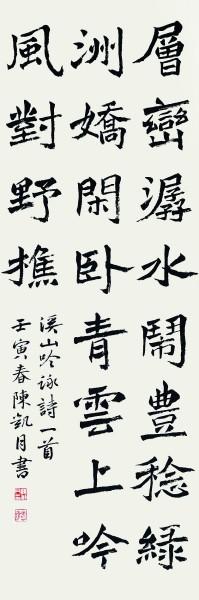 層巒潺水鬧豐稔緑
洲嬌閑卧青雲上吟
風對野樵
溪山吟詠詩一首
壬寅春陳凱月書